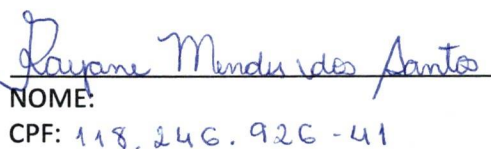 Rayane Mendes dos Santos
NOME:
CPF: 118.246.926-41